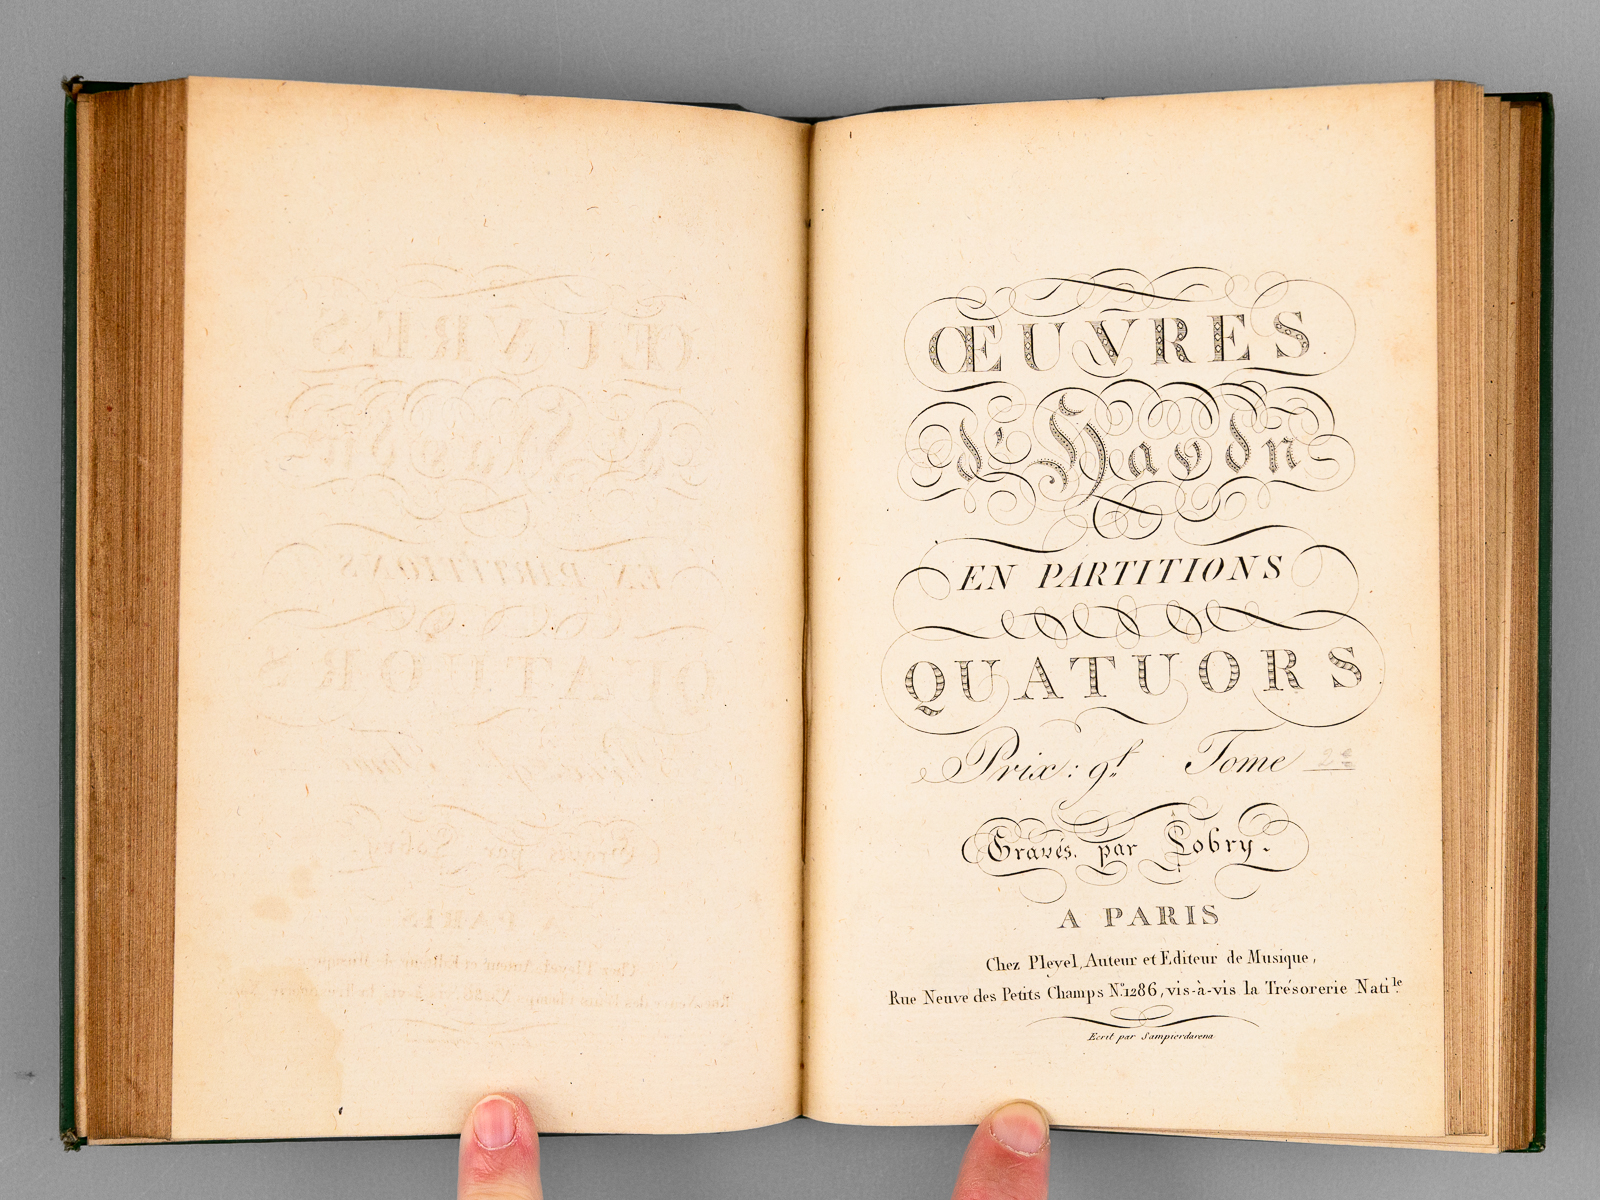 ŒUVRES
d'Haydn
EN PARTITIONS
QUATUORS
Prix: 9.ᶠ Tome 2.e
Gravés. par Lobry.
A PARIS
Chez Pleyel, Auteur et Editeur de Musique,
Rue Neuve des Petits Champs N.º 1286, vis-à-vis la Trésorerie Nati.le
Ecrit par Sampierdarena